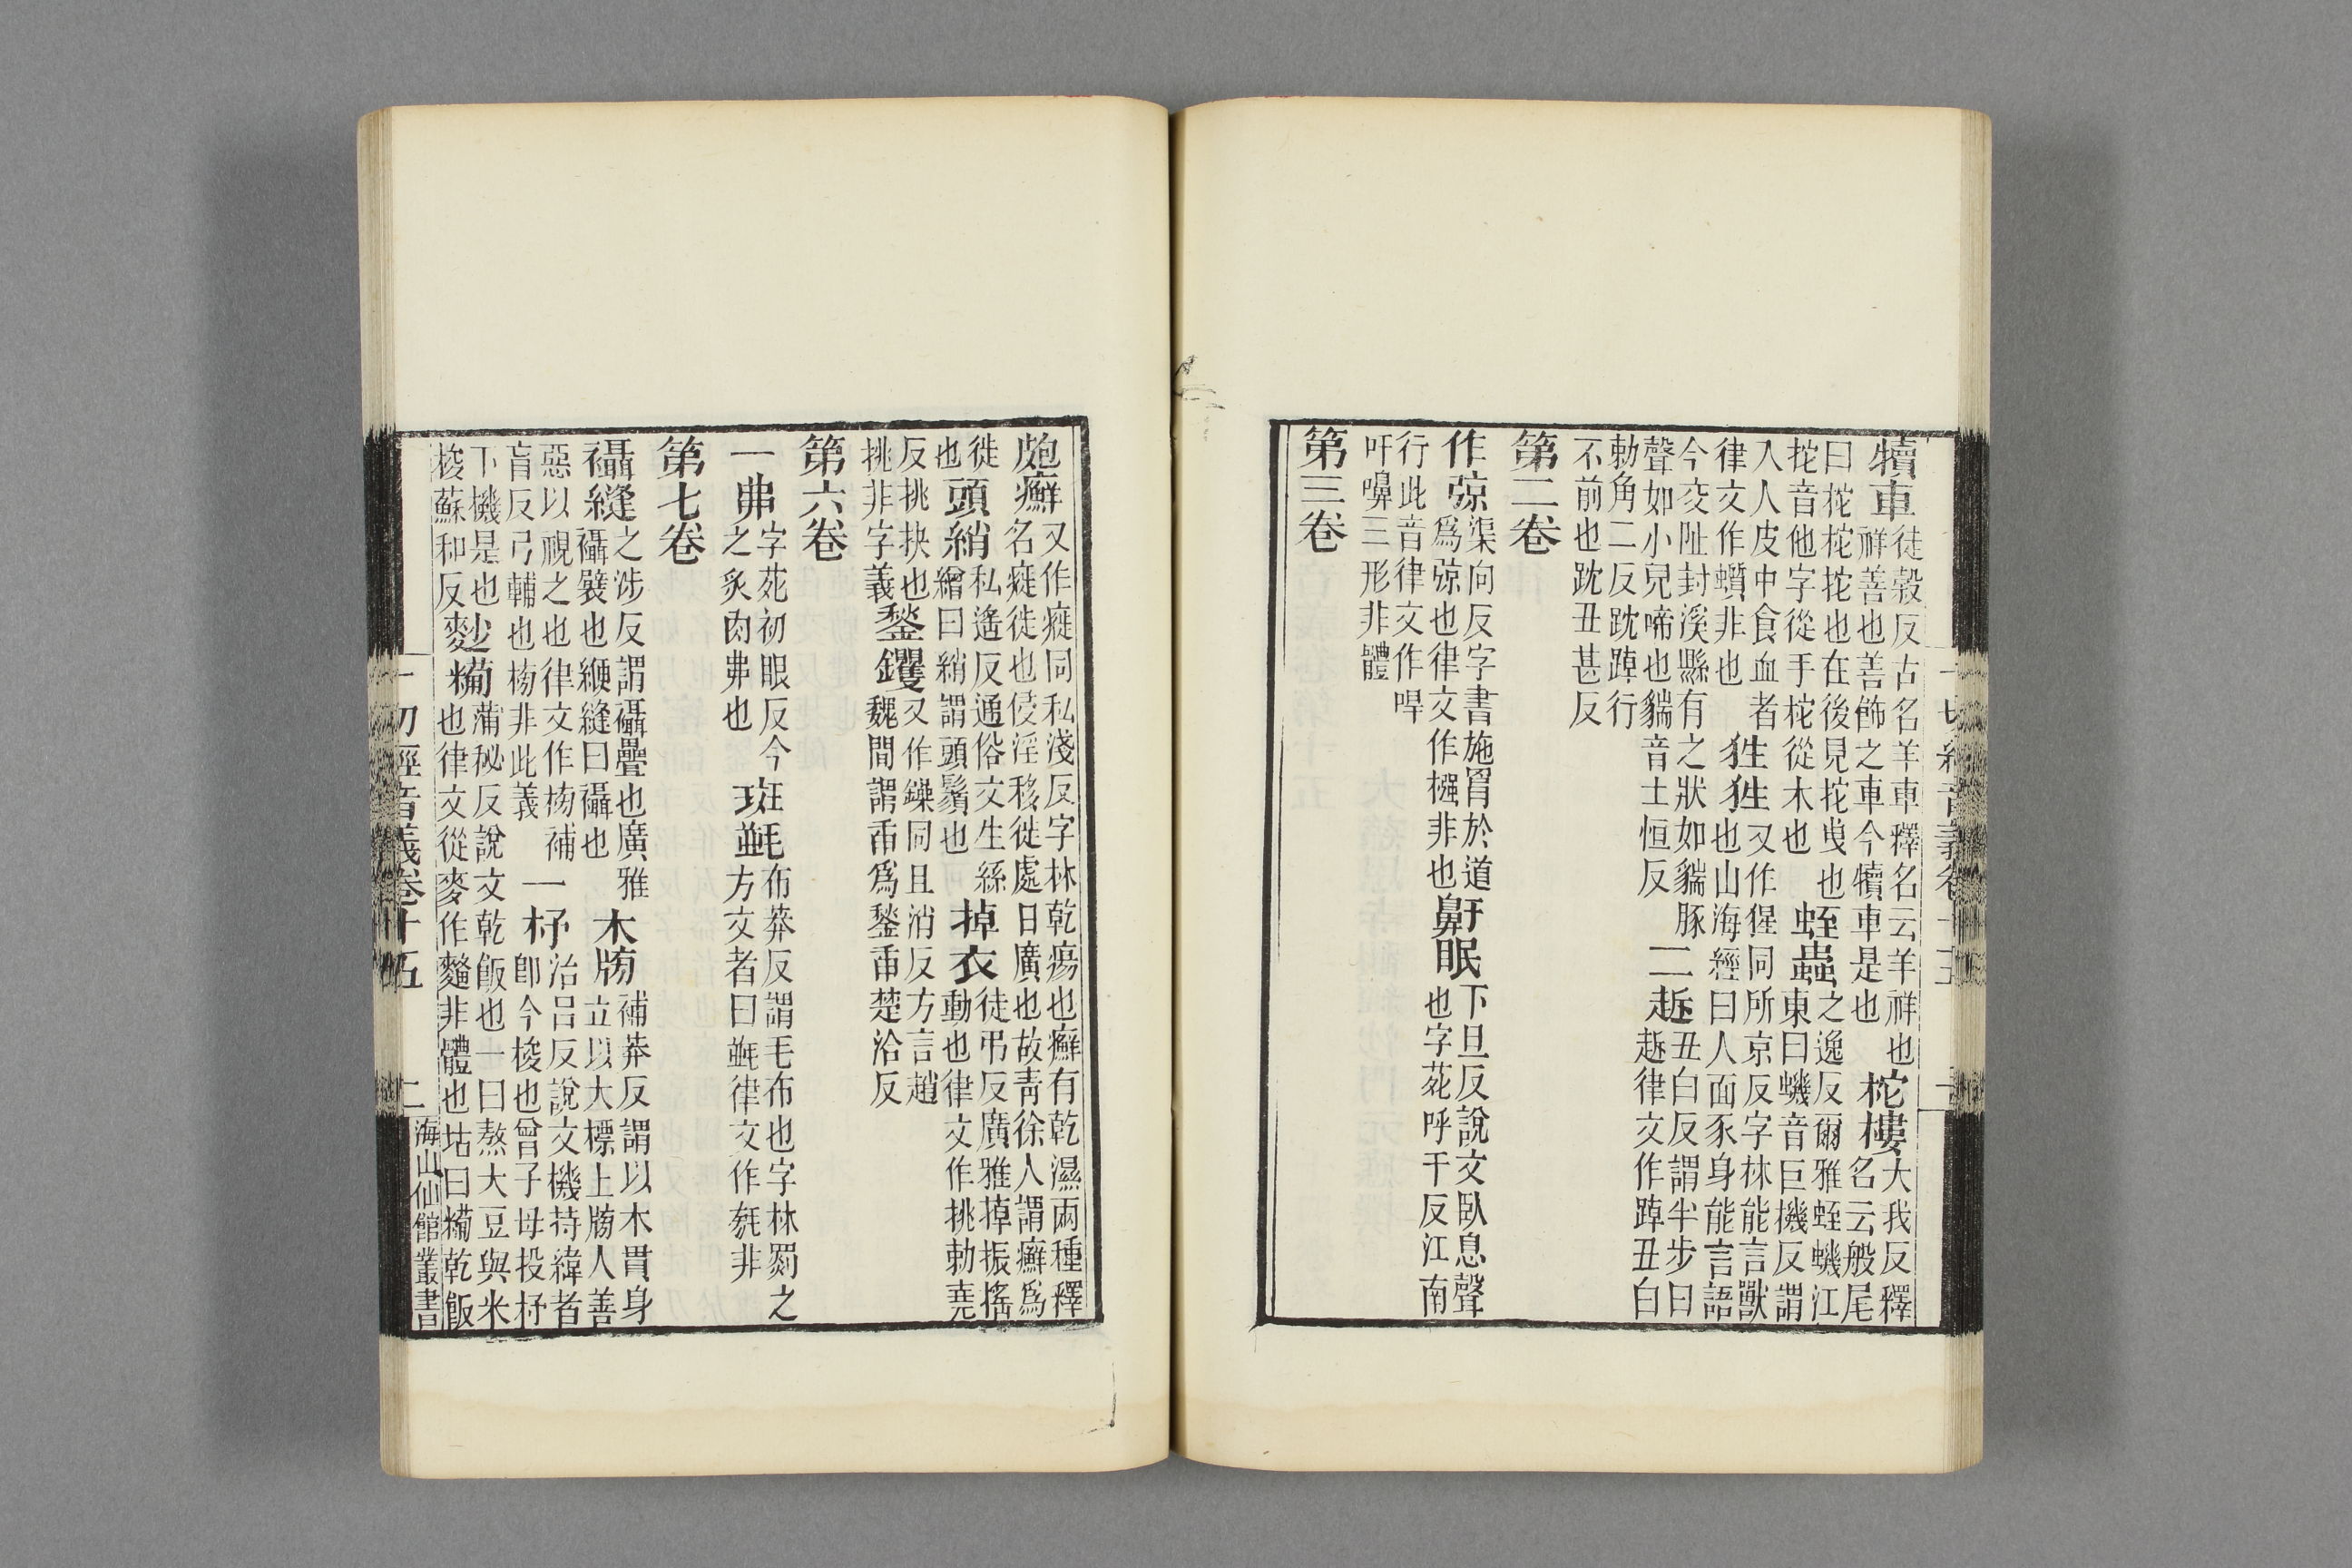 一切經音義卷十五 一
犢車
徒穀反古名羊車釋名云羊祥也
祥善也善飾之車今犢車是也
柁樓
大我反釋
名云般尾
曰柁柁拕也在後見拕曳也
拕音他字從手柁從木也
蛭蟲
之逸反爾雅蛭蟣江
東曰蟣音巨機反謂
入人皮中食血者
律文作蟥非也
狌狌
又作猩同所京反字林能言獸
也山海經曰人面豕身能言語
今交阯封溪縣有之狀如貒豚
聲如小兒啼也貒音士恒反
二
丑白反謂半步曰
律文作踔丑白
勅角二反踔行
不前也丑甚反
第二卷
作弶
渠向反字書施罥於道
爲弶也律文作摾非也
鼾眠
下旦反說文臥息聲
也字苑呼干反江南
行此音律文作哻
吁嚊三形非體
第三卷
皰癬
又作㾌同私淺反字林乾瘍也癬有乾濕兩種釋
名㾌徙也侵淫移徙處日廣也故青徐人謂癬爲
徙
也
頭綃
私遙反通俗文生絲
繒曰綃謂頭鬚也
掉衣
徒弔反廣雅掉振搖
動也律文作挑勅堯
反挑抉也
挑非字義
鍫钁
又作鐰同且消反方言趙
魏間謂臿爲鍫臿楚洽反
第六卷
一弗
字苑初眼反今
之炙肉弗也
斑
布莽反謂毛布也字林罽之
方文者曰律文作非
第七卷
襵縫
之涉反謂襵疊也廣雅
襵襞也緶縫曰襵也
木牓
補莽反謂以木貫身
立以大標上牓人善
惡以視之也律文作㮄補
盲反弓輔也㮄非此義
一杼
治呂反說文機持緯者
卽今梭也曾子母投杼
下機是也
梭蘇和反
麨糒
蒲秘反說文乾飯也一曰熬大豆與米
也律文從麥作非體也坫曰糒乾飯
一切經音義卷十五 二 海山仙館叢書